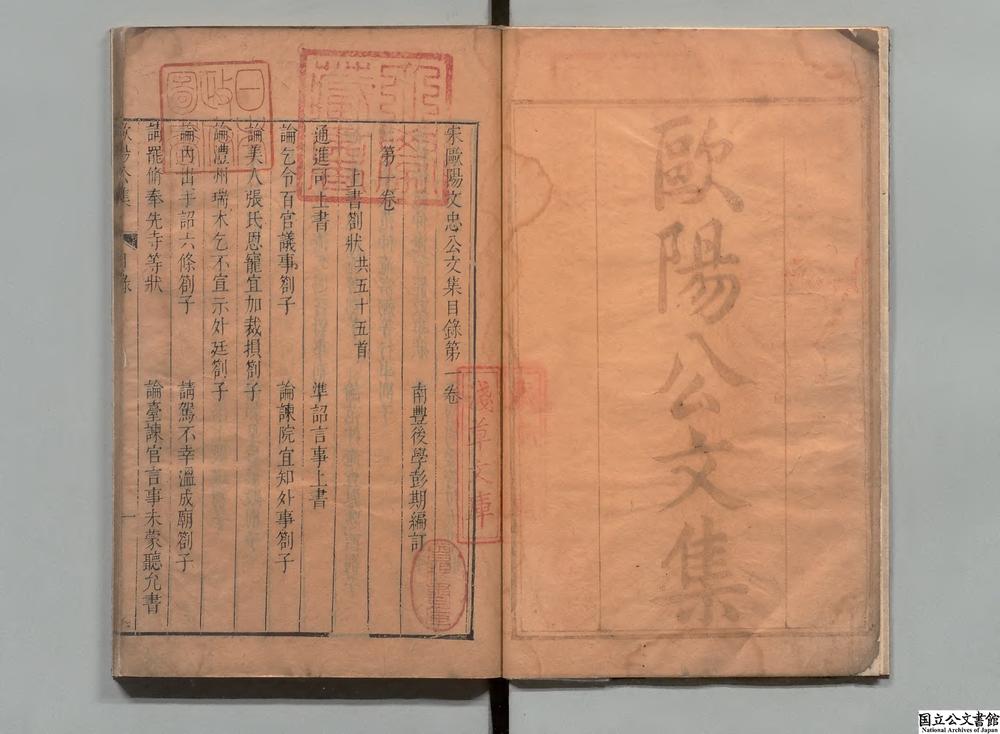 歐陽公文集
宋歐陽文忠公文集目錄第一卷
南豐後學彭期編訂
第一卷
上書劄狀共五十五首
通進司上書
準詔言事上書
論乞令百官議事劄子
論諫院宜知外事劄子
論美人張氏恩寵宜加裁損劄子
論澧州瑞木乞不宣示外廷劄子
論內出手詔六條劄子
請駕不幸溫成廟劄子
請罷脩奉先寺等狀
論臺諫官言事未蒙聽允書
歐陽公集
目錄
一
淺草文庫
日本政府圖書
国立公文書館
National Archives of Japan